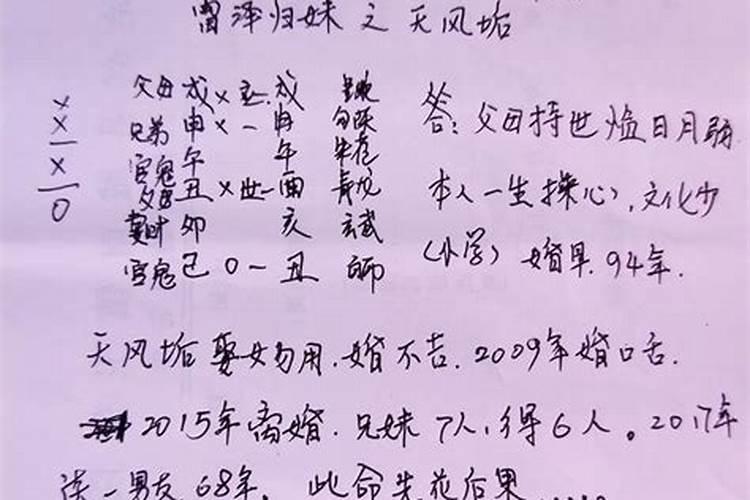 雷泽归妹之天风垢
父母 戌 x 应. 戌
x 兄弟 申 x 一 申
x 官鬼 午 午
一 丑 x 世一酉
x 妻财 卯 亥 玄武
0 官鬼 己 0 一 丑
答: 父母持世 日月
本人一生操心, 文化少
(小学) 婚早. 94年.
天风垢 娶女勿用. 婚不吉. 2009年婚口舌.
2015年离婚. 兄妹7人, 得6人。2017年
一男友 68年, 此命先花后果......